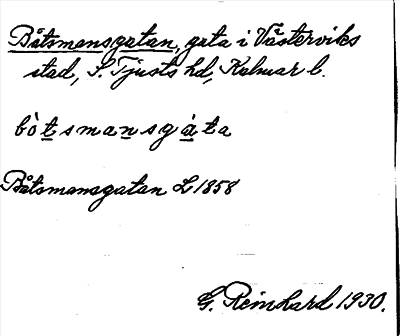 Båtsmansgatan, gata i Västerviks
stad, S. Tjusts hd, Kalmar l.
bò̀tsmansgàta
Båtsmansgatan L 1858
G. Reinhard 1930.